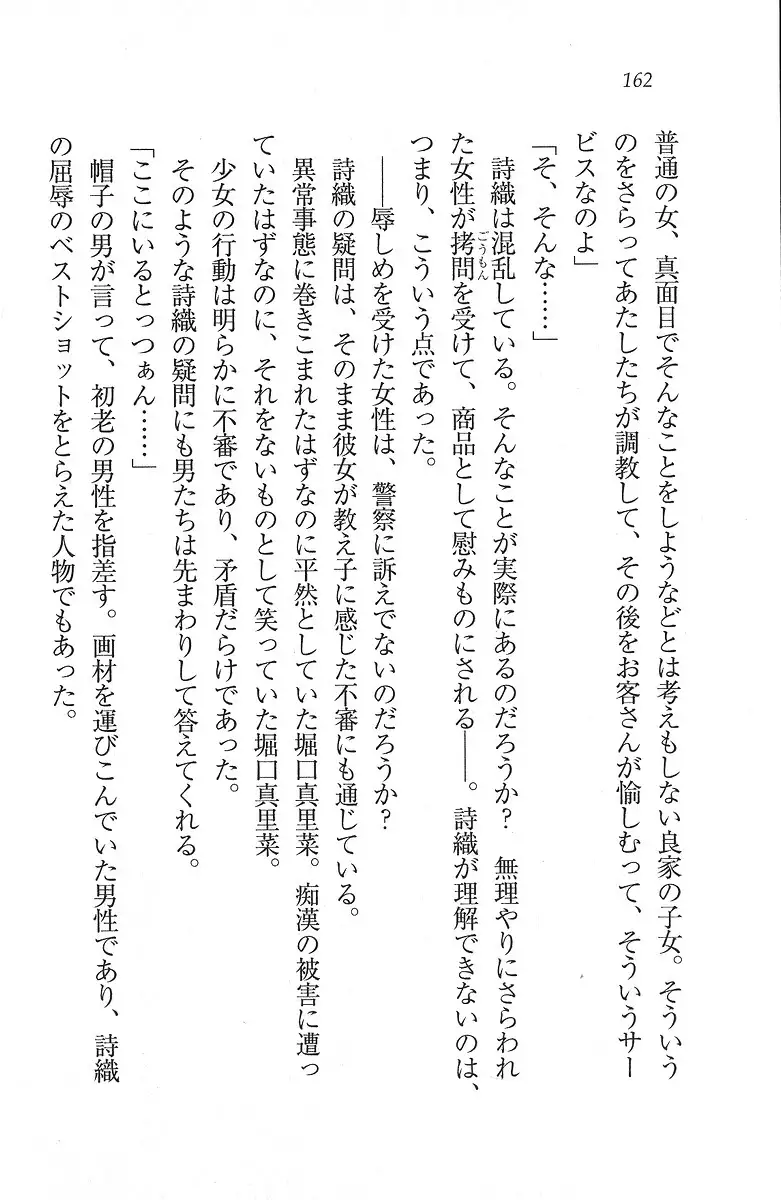 162
普通の女、真面目でそんなことをしようなどとは考えもしない良家の子女。そういう
のをさらってあたしたちが調教して、その後をお客さんが愉しむって、そういうサー
ビスなのよ」
「そ、そんな……」
　詩織は混乱している。そんなことが実際にあるのだろうか？　無理やりにさらわれ
た女性が拷問を受けて、商品として慰みものにされる——。詩織が理解できないのは、
ごうもん
つまり、こういう点であった。
　——辱しめを受けた女性は、警察に訴えでないのだろうか？
　詩織の疑問は、そのまま彼女が教え子に感じた不審にも通じている。
　異常事態に巻きこまれたはずなのに平然としていた堀口真里菜。痴漢の被害に遭っ
ていたはずなのに、それをないものとして笑っていた堀口真里菜。
　少女の行動は明らかに不審であり、矛盾だらけであった。
　そのような詩織の疑問にも男たちは先まわりして答えてくれる。
「ここにいるとっつぁん……」
　帽子の男が言って、初老の男性を指差す。画材を運びこんでいた男性であり、詩織
の屈辱のベストショットをとらえた人物でもあった。